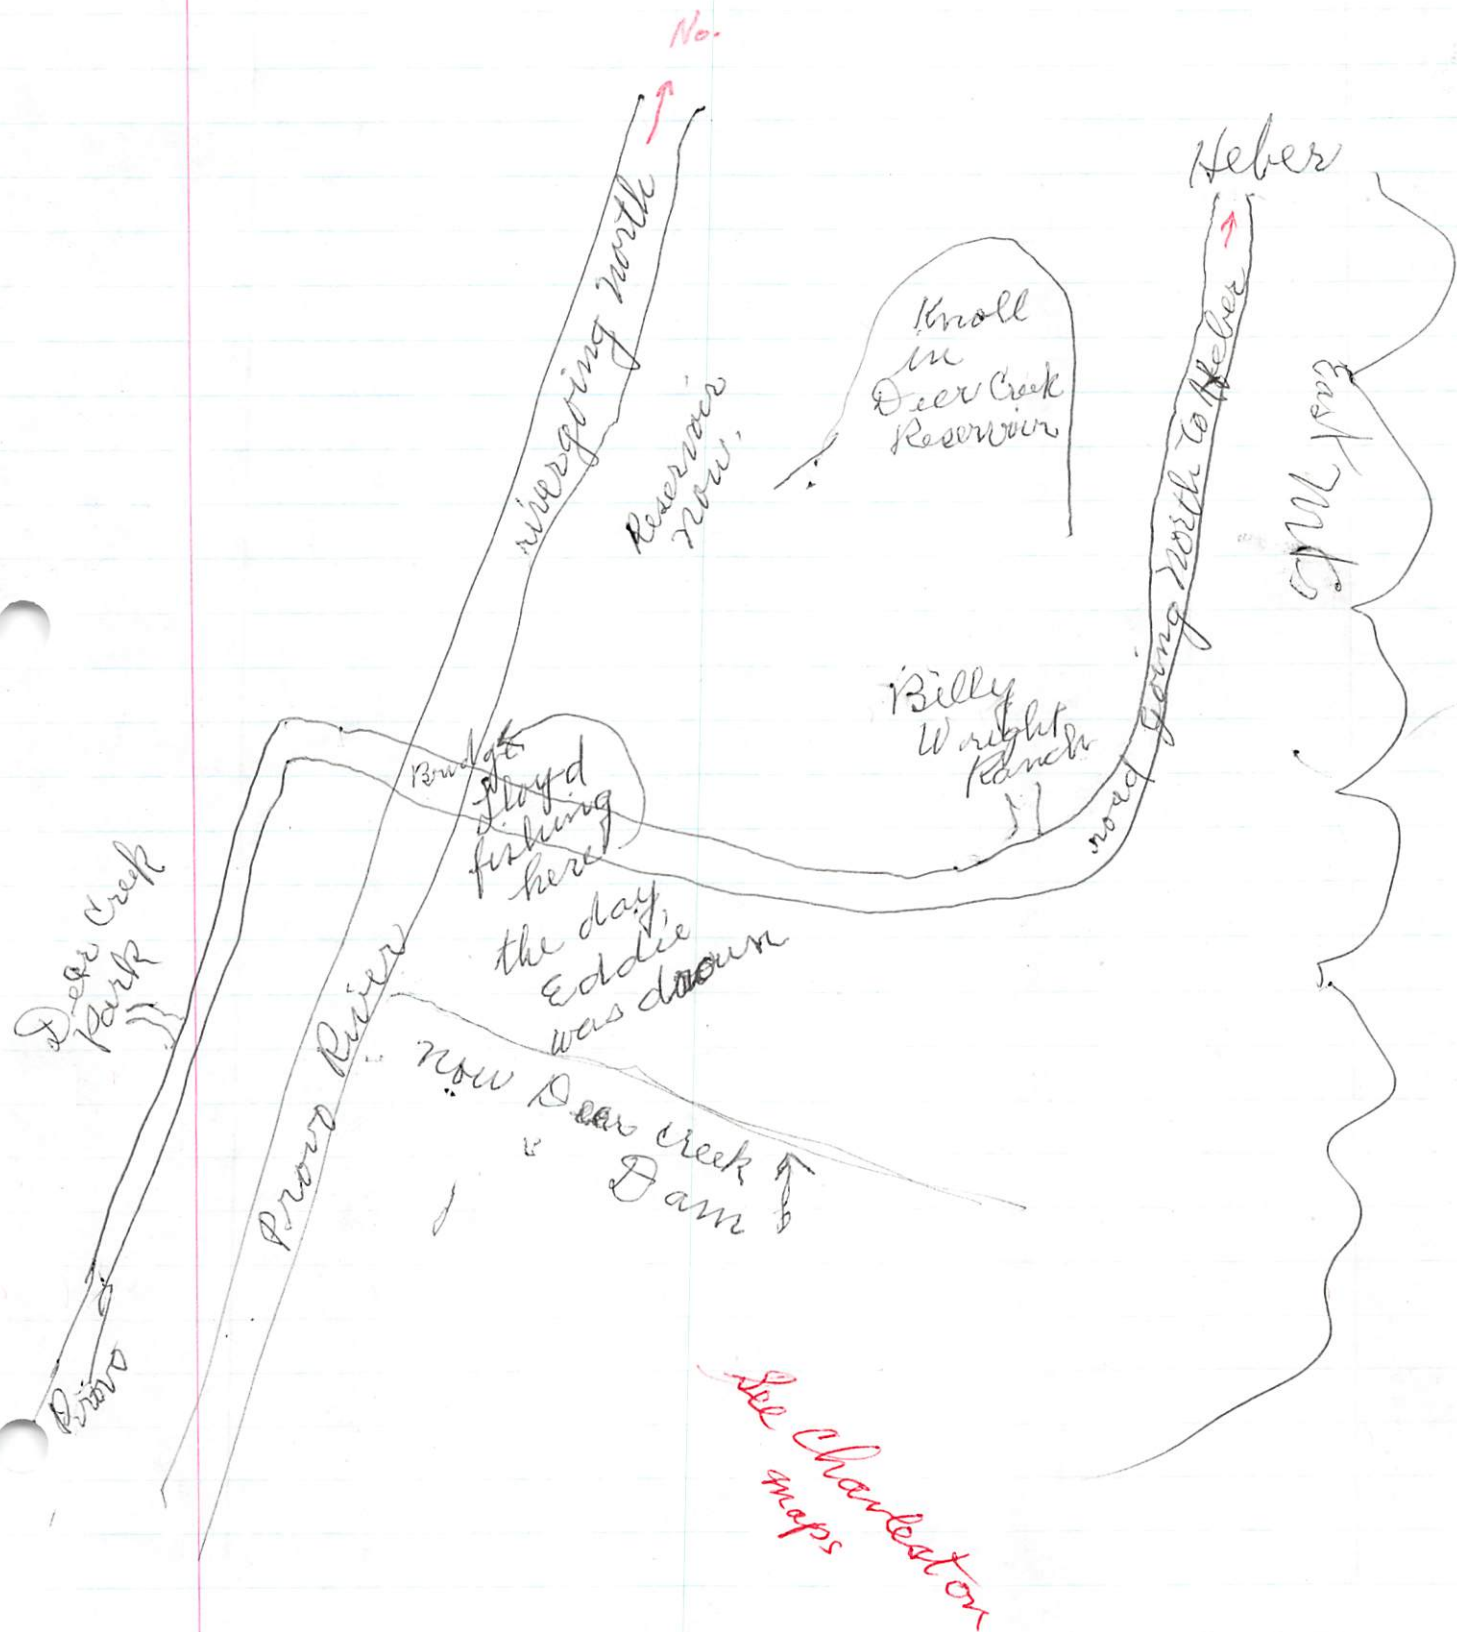 No.
Heber
river going north
Knoll
in
Deer Creek
Reservoir
Reservoir
now.
East Mts
road going north to Heber
Billy
Wright
Ranch
Bridge
Lloyd
fishing
here
the day,
Eddie
was drown
Deer Creek
Park
Provo River
now Deer creek
Dam
Provo
See Charleston
maps